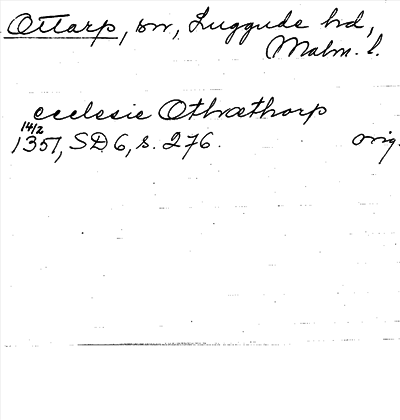 Ottarp, sn, Luggude hd,
Malm. l.
ecclesie Othræthorp
14/2
1351, SD 6, s. 276. orig.